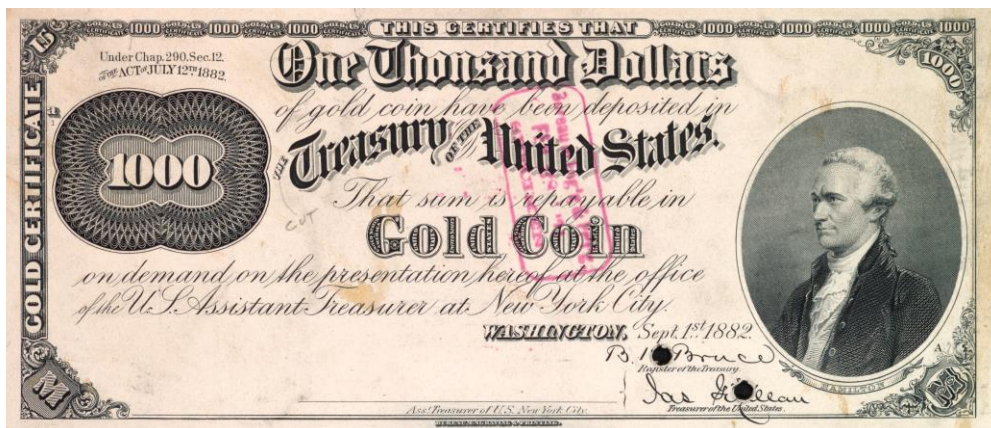 GOLD CERTIFICATE 1000 GOLD CERTIFICATE 1000 GOLD CERTIFICATE 1000 THIS CERTIFIES THAT GOLD CERTIFICATE 1000 GOLD CERTIFICATE 1000 GOLD CERTIFICATE 1000
Under Chap. 290. Sec. 12.
OF THE ACT OF JULY 12TH 1882.
One Thousand Dollars
1000
of gold coin have been deposited in
THE Treasury OF THE United States.
1000
That sum is repayable in
CUT
Gold Coin
on demand on the presentation hereof at the office
of the U.S. Assistant Treasurer at New York City.
WASHINGTON, Sept. 1st 1882.
B. K. Bruce
Register of the Treasury.
Jas Gilfillan
Treasurer of the United States.
Asst. Treasurer of U.S. New York City.
BUREAU, ENGRAVING & PRINTING.
GOLD CERTIFICATE
HAMILTON
A
M
M